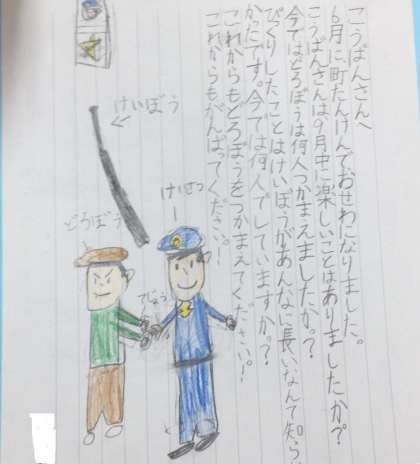 こうばんさんへ
6月に、町たんけんでおせわになりました。
こうばんさんは9月中に楽しいことはありましたか？
今ではどろぼうは何人つかまえましたか。？
びっくりしたことはけいぼうがあんなに長いなんて知ら
かったです。今では何人でしていますか。？
これからもどろぼうをつかまえてください。！
これからもがんばってください。！
けいぼう
けいさつ
どろぼう